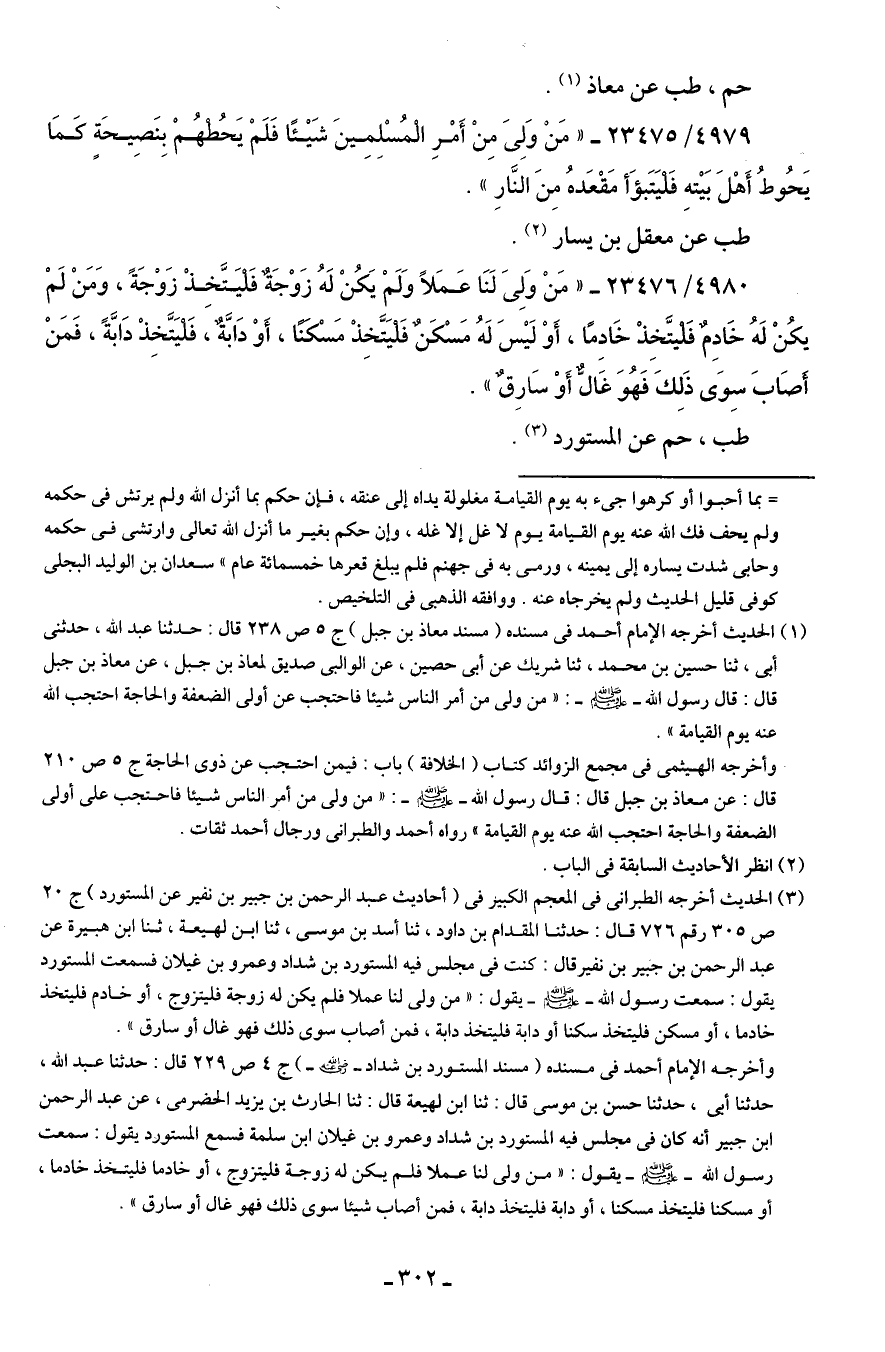 حم ، طب عن معاذ (١) .
٢٣٤٧٥/٤٩٧٩ ـ « مَنْ وَلِىَ مِنْ أَمْرِ الْمُسْلِمِينَ شَيْئًا فَلَمْ يَحُطْهُمْ بِنَصِيحَةٍ كَمَا
يَحُوطُ أَهْلَ بَيْتِهِ فَلْيَتَبَوَّأ مَقْعَدهُ مِنَ النَّارِ » .
طب عن معقل بن يسار (٢) .
٢٣٤٧٦/٤٩٨٠ ـ « مَنْ وَلِىَ لَنَا عَمَلاً وَلَمْ يَكُنْ لَهُ زَوْجَةٌ فَلْيَتَّخِذْ زَوْجَةً ، وَمَنْ لَمْ
يكُنْ لَهُ خَادِمٌ فَلْيَتَّخِذْ خَادِمًا ، أَوْ لَيْسَ لَهُ مَسْكَنٌ فَلْيَتَّخِذْ مَسْكَنًا ، أَوْ دَابَّةٌ ، فَلْيَتَّخِذْ دَابَّةً ، فَمَنْ
أَصَابَ سِوَى ذَلِكَ فَهُوَ غَالٌّ أَوْ سَارِقٌ » .
طب ، حم عن المستورد (٣) .
= بما أحبوا أو كرهوا جىء به يوم القيامة مغلولة يداه إلى عنقه ، فإن حكم بما أنزل الله ولم يرتش فى حكمه
ولم يحف فك الله عنه يوم القيامة يوم لا غل إلا غله ، وإن حكم بغير ما أنزل الله تعالى وارتشى فى حكمه
وحابى شدت يساره إلى يمينه ، ورمى به فى جهنم فلم يبلغ قعرها خمسمائة عام » سعدان بن الوليد البجلى
كوفى قليل الحديث ولم يخرجاه عنه . ووافقه الذهبى فى التلخيص .
(١) الحديث أخرجه الإمام أحمد فى مسنده ( مسند معاذ بن جبل ) ج ٥ ص ٢٣٨ قال : حدثنا عبد الله ، حدثنى
أبى ، ثنا حسين بن محمد ، ثنا شريك عن أبى حصين ، عن الوالبى صديق لمعاذ بن جبل ، عن معاذ بن جبل
قال : قال رسول الله ـ ﷺ ـ : « من ولى من أمر الناس شيئا فاحتجب عن أولى الضعفة والحاجة احتجب الله
عنه يوم القيامة » .
وأخرجه الهيثمى فى مجمع الزوائد كتاب ( الخلافة ) باب : فيمن احتجب عن ذوى الحاجة ج ٥ ص ٢١٠
قال : عن معاذ بن جبل قال : قال رسول الله ـ ﷺ ـ : « من ولى من أمر الناس شيئا فاحتجب على أولى
الضعفة والحاجة احتجب الله عنه يوم القيامة » رواه أحمد والطبرانى ورجال أحمد ثقات .
(٢) انظر الأحاديث السابقة فى الباب .
(٣) الحديث أخرجه الطبرانى فى المعجم الكبير فى ( أحاديث عبد الرحمن بن جبير بن نفير عن المستورد ) ج ٢٠
ص ٣٠٥ رقم ٧٢٦ قال : حدثنا المقدام بن داود ، ثنا أسد بن موسى ، ثنا ابن لهيعة ، ثنا ابن هبيرة عن
عبد الرحمن بن جبير بن نفيرقال : كنت فى مجلس فيه المستورد بن شداد وعمرو بن غيلان فسمعت المستورد
يقول : سمعت رسول الله ـ ﷺ ـ يقول : « من ولى لنا عملا فلم يكن له زوجة فليتزوج ، أو خادم فليتخذ
خادما ، أو مسكن فليتخذ سكنا أو دابة فليتخذ دابة ، فمن أصاب سوى ذلك فهو غال أو سارق » .
وأخرجه الإمام أحمد فى مسنده ( مسند المستورد بن شداد ـ رضي الله عنه ـ ) ج ٤ ص ٢٢٩ قال : حدثنا عبد الله ،
حدثنا أبى ، حدثنا حسن بن موسى قال : ثنا ابن لهيعة قال : ثنا الحارث بن يزيد الحضرمى ، عن عبد الرحمن
ابن جبير أنه كان فى مجلس فيه المستورد بن شداد وعمرو بن غيلان ابن سلمة فسمع المستورد يقول : سمعت
رسول الله ـ ﷺ ـ يقول : « من ولى لنا عملا فلم يكن له زوجة فليتزوج ، أو خادما فليتخذ خادما ،
أو مسكنا فليتخذ مسكنا ، أو دابة فليتخذ دابة ، فمن أصاب شيئا سوى ذلك فهو غال أو سارق » .
ـ ٣٠٢ ـ